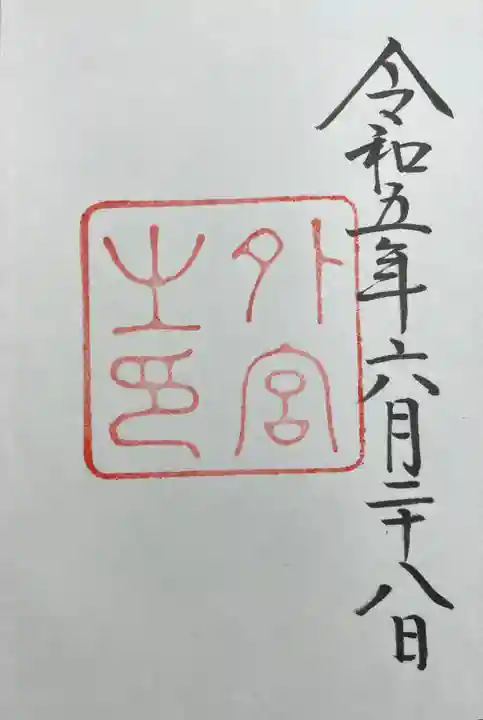 令和五年六月二十八日
外宮
之印